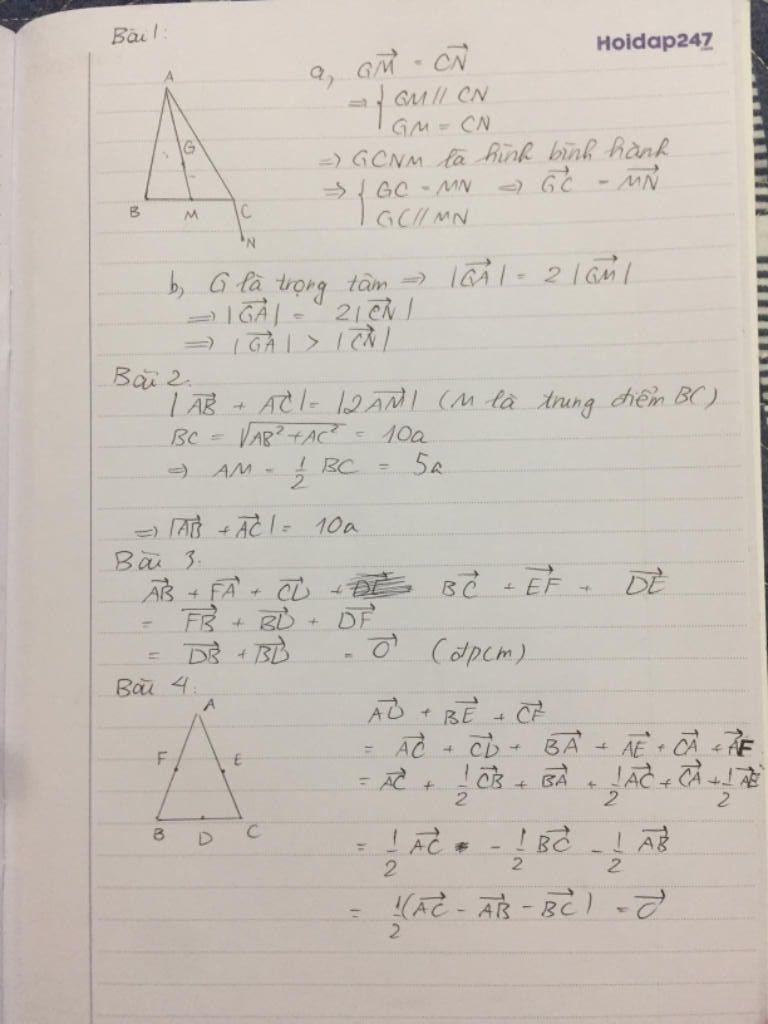 Bài 1:
Hoidap247
A
G
B M C
N
a, \overrightarrow{GM} = \overrightarrow{CN}
⇒ { GM // CN
GM = CN
⇒ GCNM là hình bình hành
⇒ { GC = MN ⇒ \overrightarrow{GC} = \overrightarrow{MN}
GC // MN
b, G là trọng tâm ⇒ |\overrightarrow{GA}| = 2 |\overrightarrow{GM}|
⇒ |\overrightarrow{GA}| = 2|\overrightarrow{CN}|
⇒ |\overrightarrow{GA}| > |\overrightarrow{CN}|
Bài 2.
|\overrightarrow{AB} + \overrightarrow{AC}| = |2\overrightarrow{AM}| (M là trung điểm BC)
BC = \sqrt{AB² + AC²} = 10a
⇒ AM = \frac{1}{2} BC = 5a
⇒ |\overrightarrow{AB} + \overrightarrow{AC}| = 10a
Bài 3.
\overrightarrow{AB} + \overrightarrow{FA} + \overrightarrow{CD} + \overrightarrow{BC} + \overrightarrow{EF} + \overrightarrow{DE}
= \overrightarrow{FB} + \overrightarrow{BD} + \overrightarrow{DF}
= \overrightarrow{DB} + \overrightarrow{BD} = \overrightarrow{0} (đpcm)
Bài 4:
A
F E
B D C
\overrightarrow{AD} + \overrightarrow{BE} + \overrightarrow{CF}
= \overrightarrow{AC} + \overrightarrow{CD} + \overrightarrow{BA} + \overrightarrow{AE} + \overrightarrow{CA} + \overrightarrow{AF}
= \overrightarrow{AC} + \frac{1}{2}\overrightarrow{CB} + \overrightarrow{BA} + \frac{1}{2}\overrightarrow{AC} + \overrightarrow{CA} + \frac{1}{2}\overrightarrow{AB}
= \frac{1}{2}\overrightarrow{AC} - \frac{1}{2}\overrightarrow{BC} - \frac{1}{2}\overrightarrow{AB}
= \frac{1}{2}(\overrightarrow{AC} - \overrightarrow{AB} - \overrightarrow{BC}) = \overrightarrow{0}